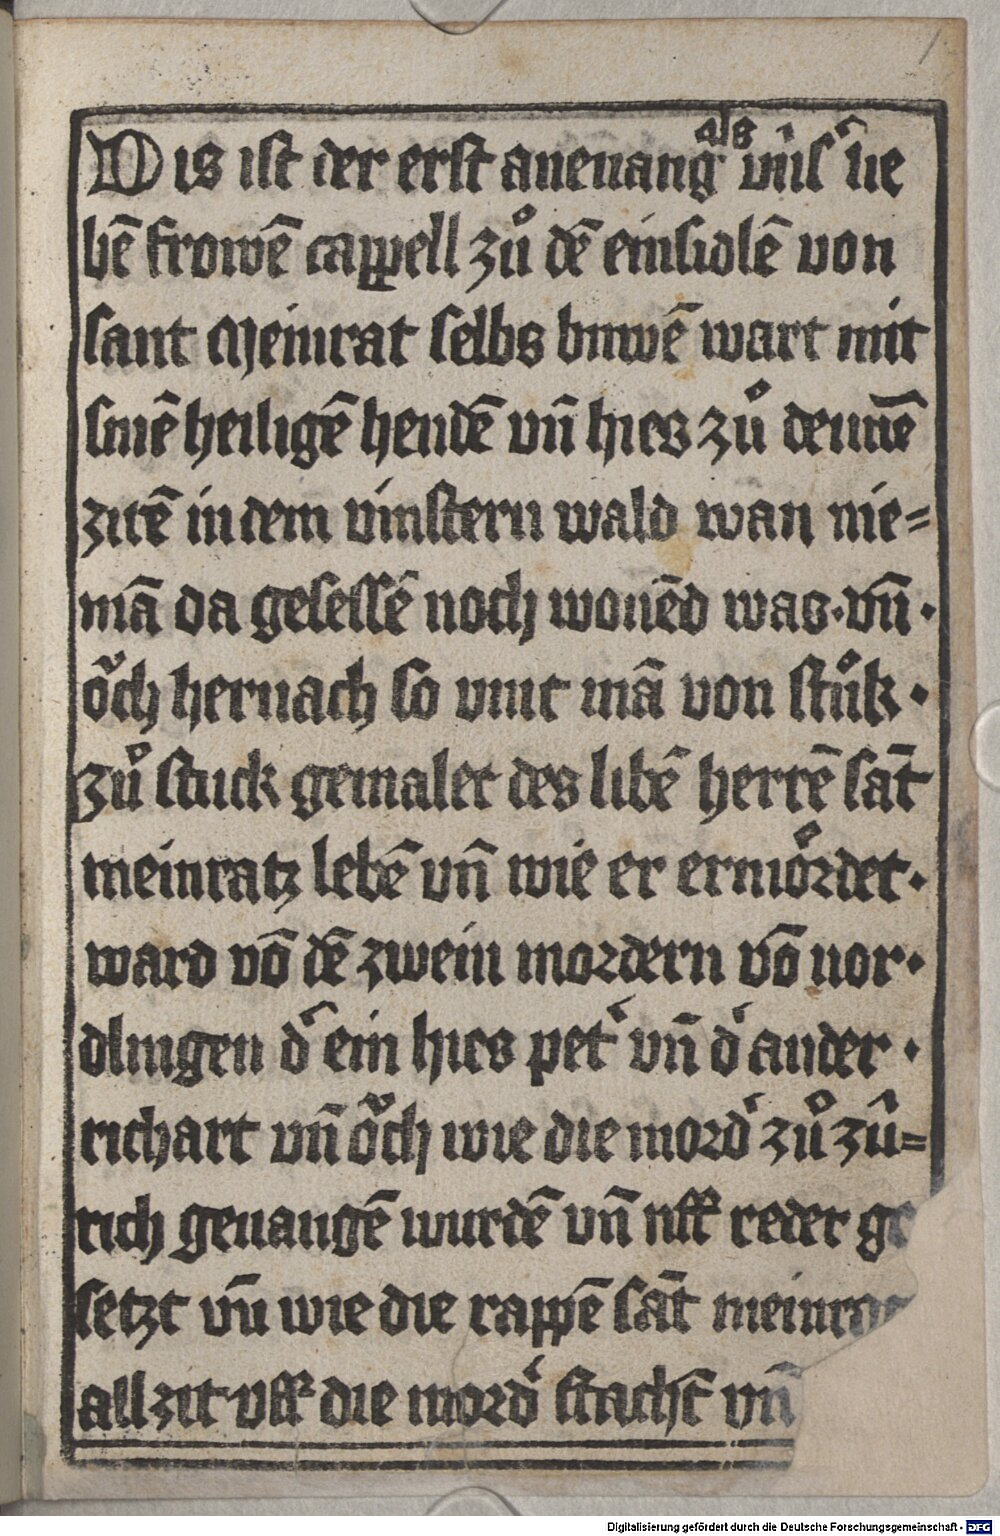 Dis ist der erst aneuang als vnſ lie
bē frowē cappell zů dē einſidlē von
ſant Meinrat ſelbs buwē wart mit
ſinē heiligē hendē vn̄ hies zů dennē
zitē in dem vinſtern wald wan nie=
mā da geſeſſē noch wonēd was·vn̄·
oͮch hernach ſo vint mā von ſtůk·
zů ſtuck gemalet des libē herrē ſāt
meinratz lebē vn̄ wie er ermoͤrdet·
ward vō dē zwein mordern vō nor·
dlingen d' ein hies pet' vn̄ d' ander·
richart vn̄ oͮch wie die mord' zů zü=
rich geuangē wurdē vn̄ uff reder ge
ſetzt vn̄ wie die rappē ſāt meinra
allzit vff die mord' ſtachē vn̄
Digitalisierung gefördert durch die Deutsche Forschungsgemeinschaft - DFG